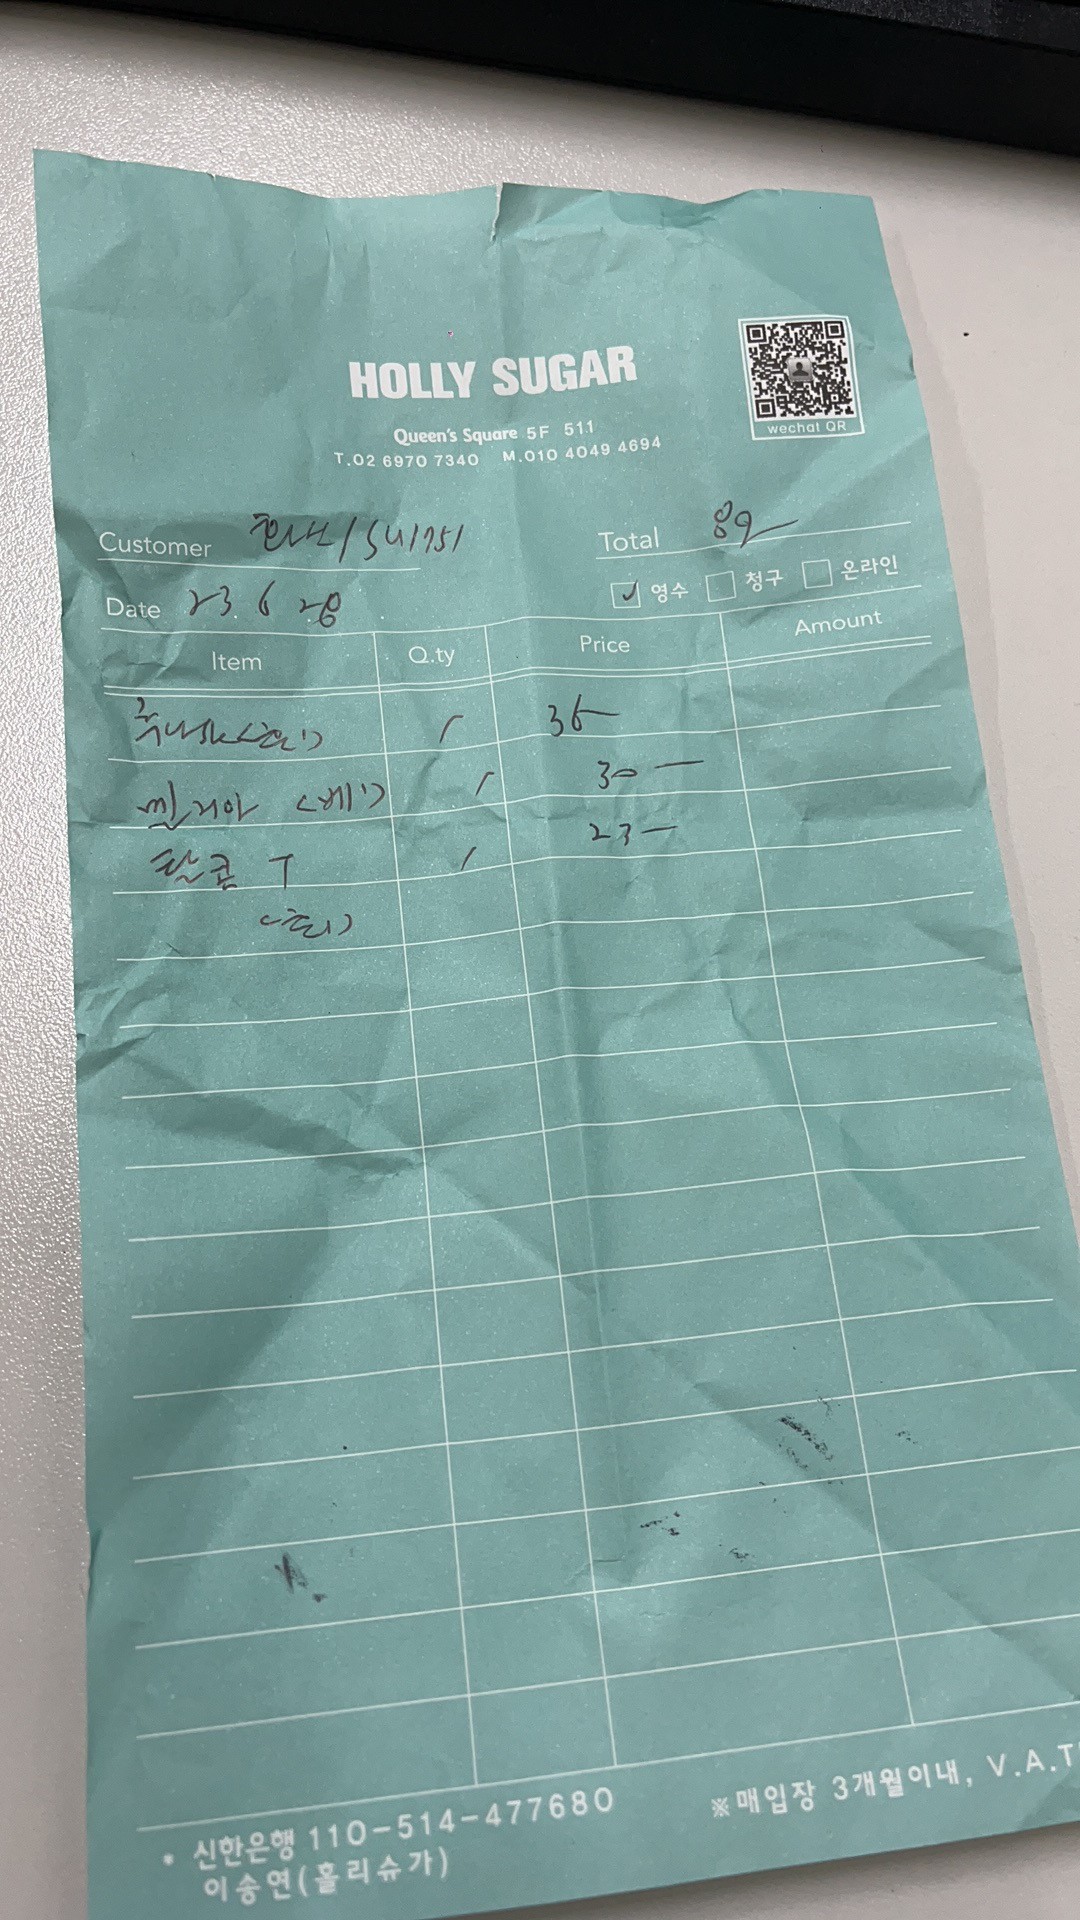 HOLLY SUGAR
Queen's Square 5F 511
T.02 6970 7340 M.010 4049 4694
wechat QR
Customer
Total 89
Date 23. 6 28
영수 청구 온라인
Item Q.ty Price Amount
1 36
린지아 <베이> 1 30
탈콤 T 1 23
신한은행 110-514-477680
이송연(홀리슈가)
※매입장 3개월이내, V.A.T